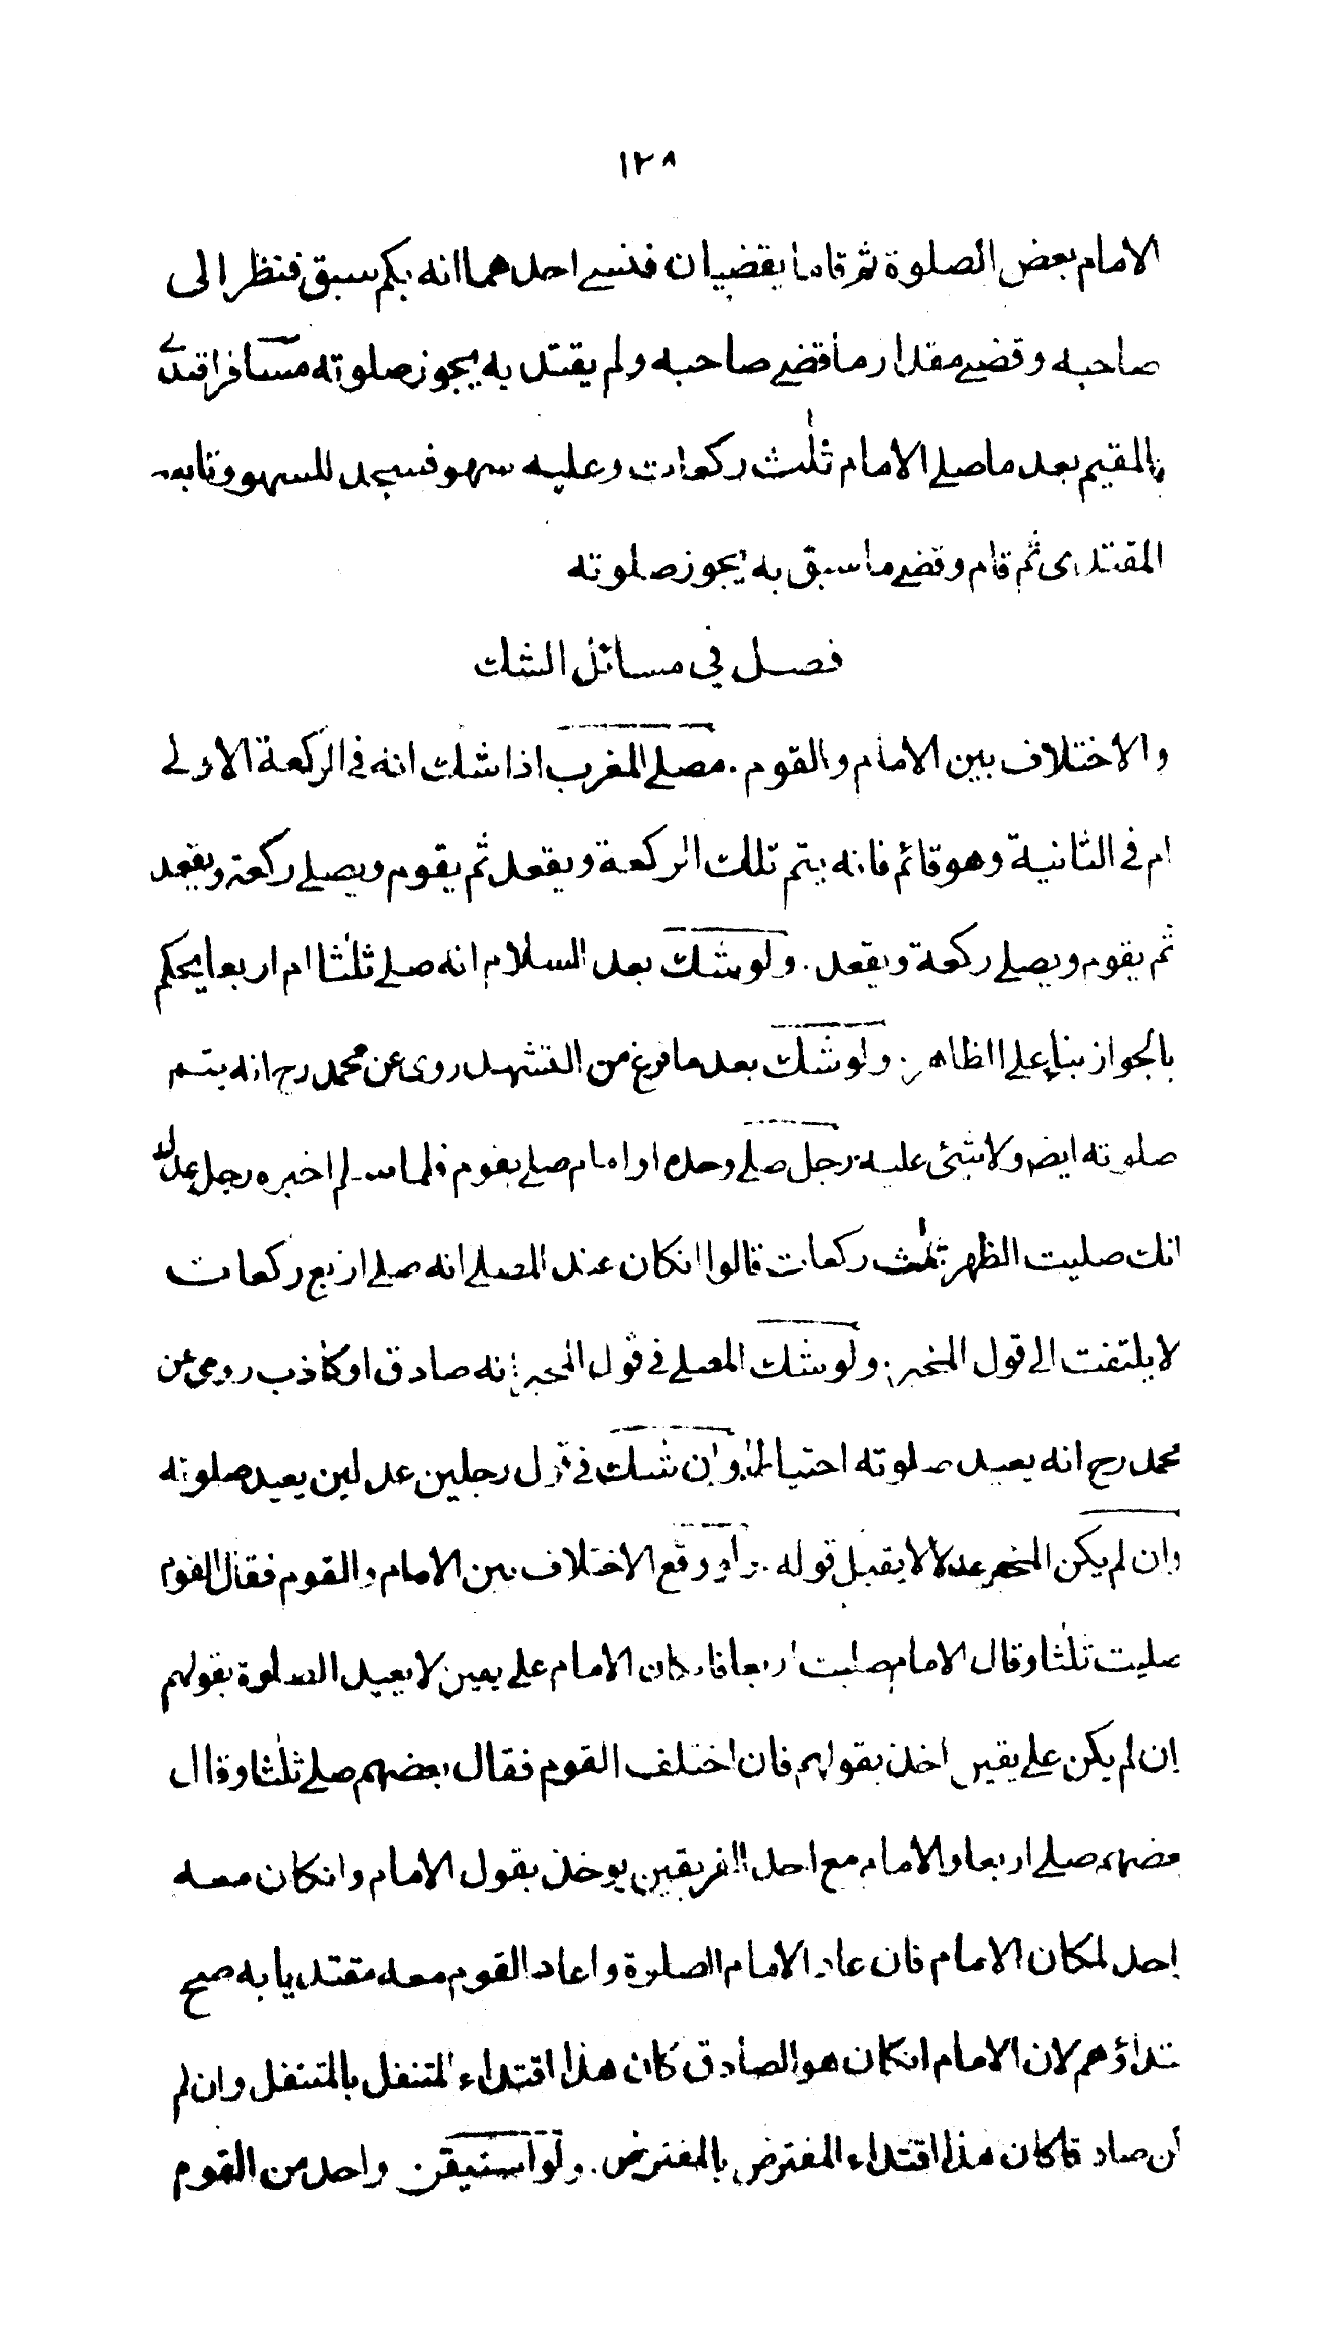 ١٢٨
الامام بعض الصلوة ثم قاما يقضيان فنسى احدهما انه بكم سبق فنظر الى
صاحبه وقضى مقدار ما قضى صاحبه ولم يقتد به يجوز صلوته مسافر اقتدى
بالمقيم بعد ما صلى الامام ثلٰث ركعات وعليه سهو فسجد للسهو وتابعه
المقتدى ثم قام وقضى ما سبق به يجوز صلوته
فصل في مسائل الشك
والاختلاف بين الامام والقوم . مصلى المغرب اذا شك انه فى الركعة الاولى
ام فى الثانية وهو قائم فانه يتم تلك الركعة ويقعد ثم يقوم ويصلى ركعة ويقعد
ثم يقوم ويصلى ركعة ويقعد . ولو شك بعد السلام انه صلى ثلٰثا ام اربعا يحكم
بالجواز بناء على الظاهر . ولو شك بعد ما فرغ من التشهد روى عن محمد رح انه يتم
صلوته ايضا ولا شئ عليه رجل صلى وحده او امام صلى بقوم فلما سلم اخبره رجل عدل
انك صليت الظهر ثلٰث ركعات قالوا انكان عند المصلى انه صلى اربع ركعات
لا يلتفت الى قول المخبر . ولو شك المصلى فى قول المخبر انه صادق او كاذب روى عن
محمد رح انه يعيد صلوته احتياطا وان شك فى قول رجلين عدلين يعيد صلوته
وان لم يكن المخبر عدلا لا يقبل قوله . ولو وقع الاختلاف بين الامام والقوم فقال القوم
صليت ثلٰثا وقال الامام صليت اربعا فان كان الامام على يقين لا يعيد الصلوة بقولهم
ان لم يكن على يقين اخذ بقولهم فان اختلف القوم فقال بعضهم صلى ثلٰثا وقال
عضهم صلى اربعا والامام مع احد الفريقين يوخذ بقول الامام وانكان معه
احد لمكان الامام فان عاد الامام الصلوة واعاد القوم معه مقتديا به صح
تداؤهم لان الامام انكان هو الصادق كان هذا اقتداء المتنفل بالمتنفل وان لم
كن صادقا كان هذا اقتداء المفترض بالمفترض . ولو استيقن واحد من القوم